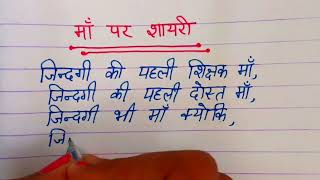 माँ पर शायरी
जिन्दगी की पहली शिक्षक माँ,
जिन्दगी की पहली दोस्त माँ,
जिन्दगी भी माँ क्योकि,
जि